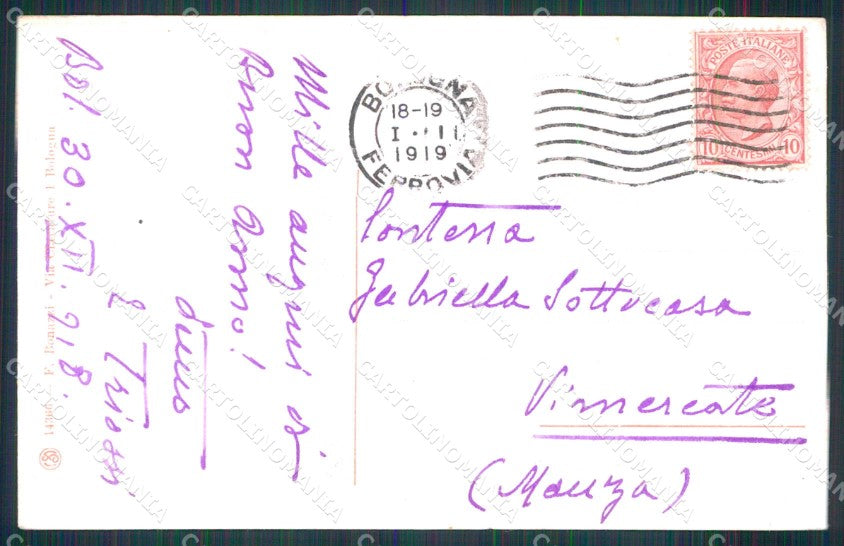 Bol. 30.XII.918.
Mille auguri di
Buon Anno!
BOLOGNA
18-19
I · II
1919
FERROVIA
POSTE ITALIANE
10 CENTESIMI 10
Contessa
Gabriella Sottocasa
Vimercate
(Monza)
14366 F. Bonazzi - Via 1 Bologna
CARTOLINOMANIA